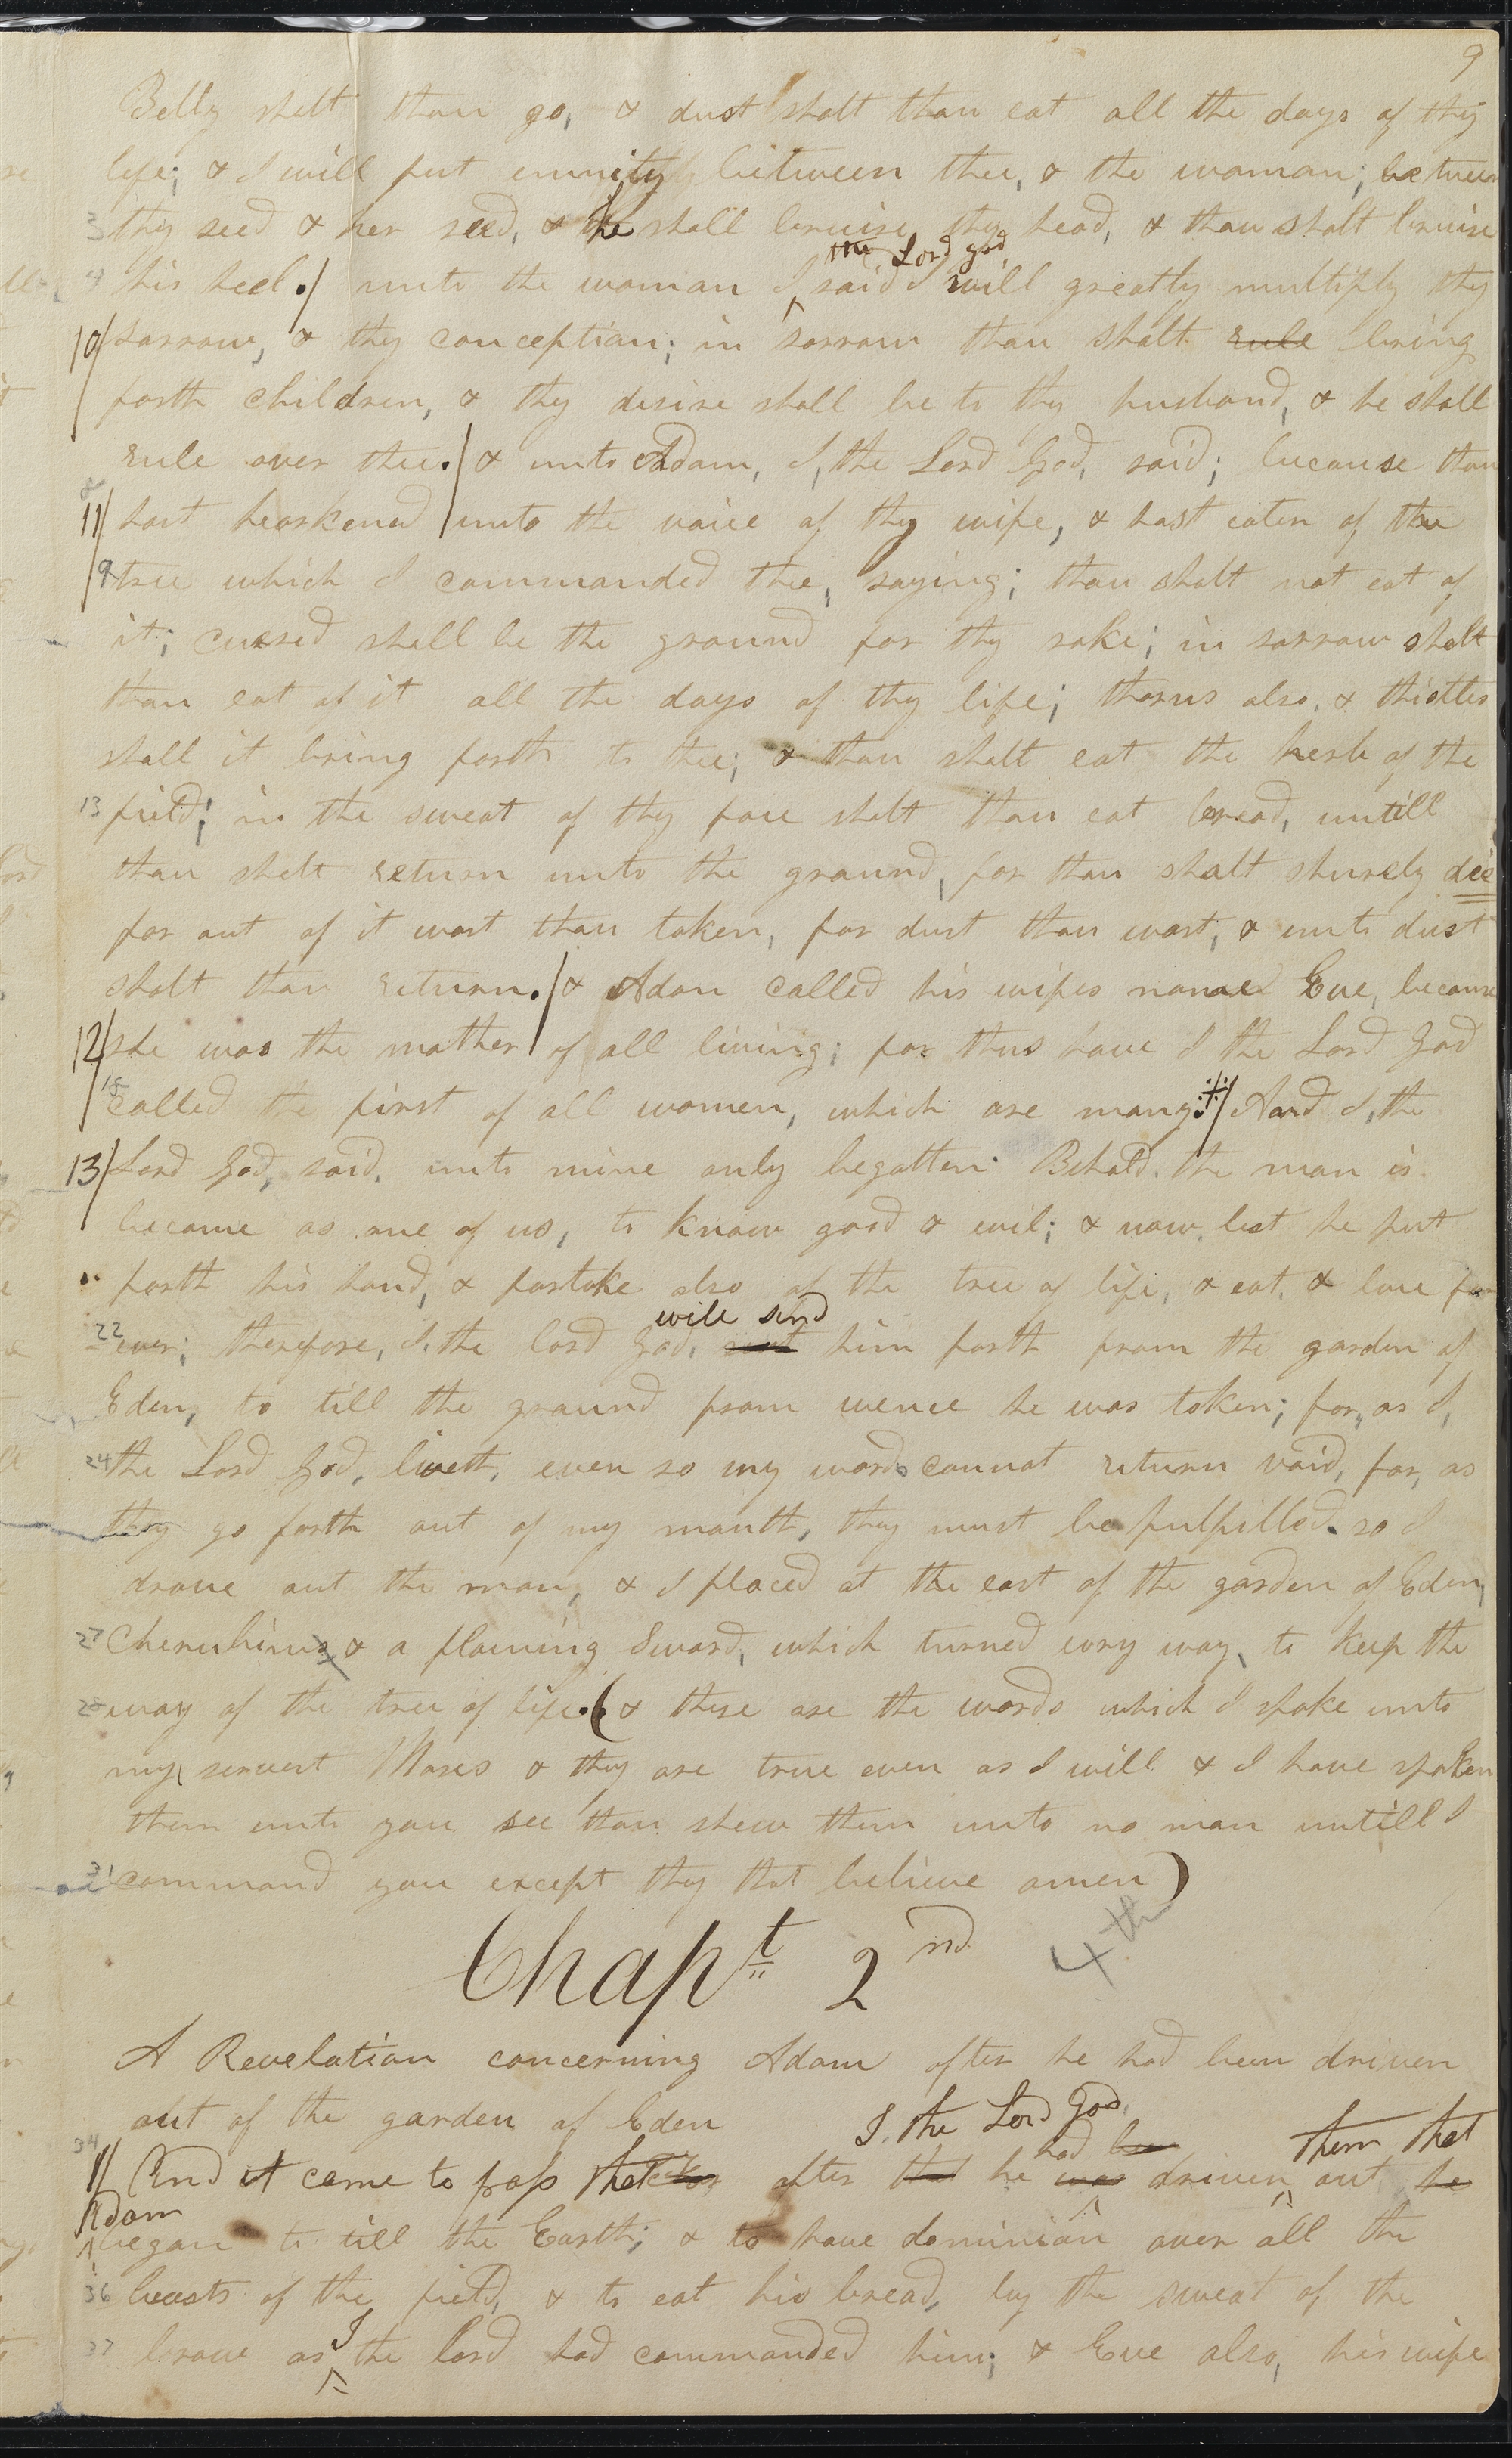 9
Belly shalt thou go, & dust shalt thou eat all the days of thy
life; & I will put enmity between thee, & the woman; between
3 thy seed & her seed, & he shall bruise thy head, & thou shalt bruise
the Lord god,
4 his heel./ unto the woman I ^ said I will greatly multiply thy
10/ sorrow, & thy conception; in sorrow thou shalt rule bring
forth children, & thy desire shall be to thy husband, & he shall
rule over thee./ & unto Adam, I, the Lord God, said; because thou
11/ hast hearkened unto the voice of thy wife, & hast eaten of the
9 tree which I commanded thee, saying; thou shalt not eat of
it; cursed shall be the ground for thy sake; in sorrow shalt
thou eat of it all the days of thy life; thorns also, & thistles
shall it bring forth to thee; & thou shalt eat the herb of the
13 field; in the sweat of thy face shalt thou eat bread, untill
thou shalt return unto the ground, for thou shalt shurely die
for out of it wast thou taken, for dust thou wast, & unto dust
shalt thou return./ & Adam called his wifes name Eve, because
12/ she was the mother of all living; for thus have I the Lord God
called the first of all women, which are many./ And I, the
13/ Lord God, said, unto mine only begotten Behold. the man is
become as one of us, to know good & evil; & now, lest he put
forth his hand, & partake also of the tree of life, & eat, & live for
will send
22 ever; therefore, I, the lord God, him forth from the garden of
Eden, to till the ground from wence he was taken; for, as I,
24 the Lord God, liveth, even so my words cannot return void, for, as
they go forth out of my mouth, they must be fulfilled. so I
drove out the man, & I placed at the east of the garden of Eden,
27 Cherubims & a flaming Sword, which turned evry way, to keep the
28 way of the tree of life.( & these are the words which I spake unto
my servent Moses & they are true even as I will & I have spoken
them unto you see thou shew them unto no man untill I
31 command you except thy that believe amen)
Chapt 2nd 4th
A Revelation concerning Adam after he had been driven
out of the garden of Eden
I, the Lord God,
had be them that
34
1/ And it came to pass that after that he was driven ^ out he
Adam
^ began to till the Earth; & to have dominion over all the
36 beasts of the field, & to eat his bread, by the sweat of the
I
37 brow as ^ the lord had commanded him; & Eve also, his wife